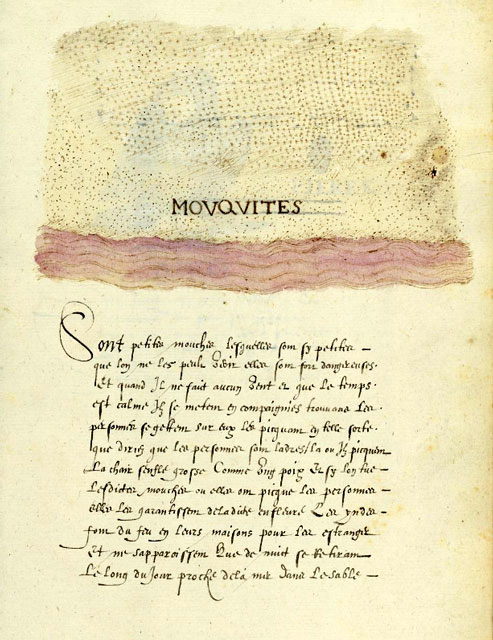 MOVQVITES
Sont petites mouches lesquelles sont sy petites
que lon ne les peult veoir elles sont fort dangereuses
Et quand Il ne fait aucun vent et que le temps
est calme Ilz se metent en compaignies trouvant les
personnes se gettent sur eux les picquant en telle sorte
que diriez que les personnes sont ladres / la ou Ilz picquent
La chair senfle grosse Comme vng poix Et sy lon tue
Lesdictes mouches ou elles ont picque les personnes
elles les garantissent deladicte enfleure Les yndes
font du feu en leurs maisons pour les estranger
Et ne sapparoissent que de nuict se Retirant
Le long du Jour proche dela mer dans le sable